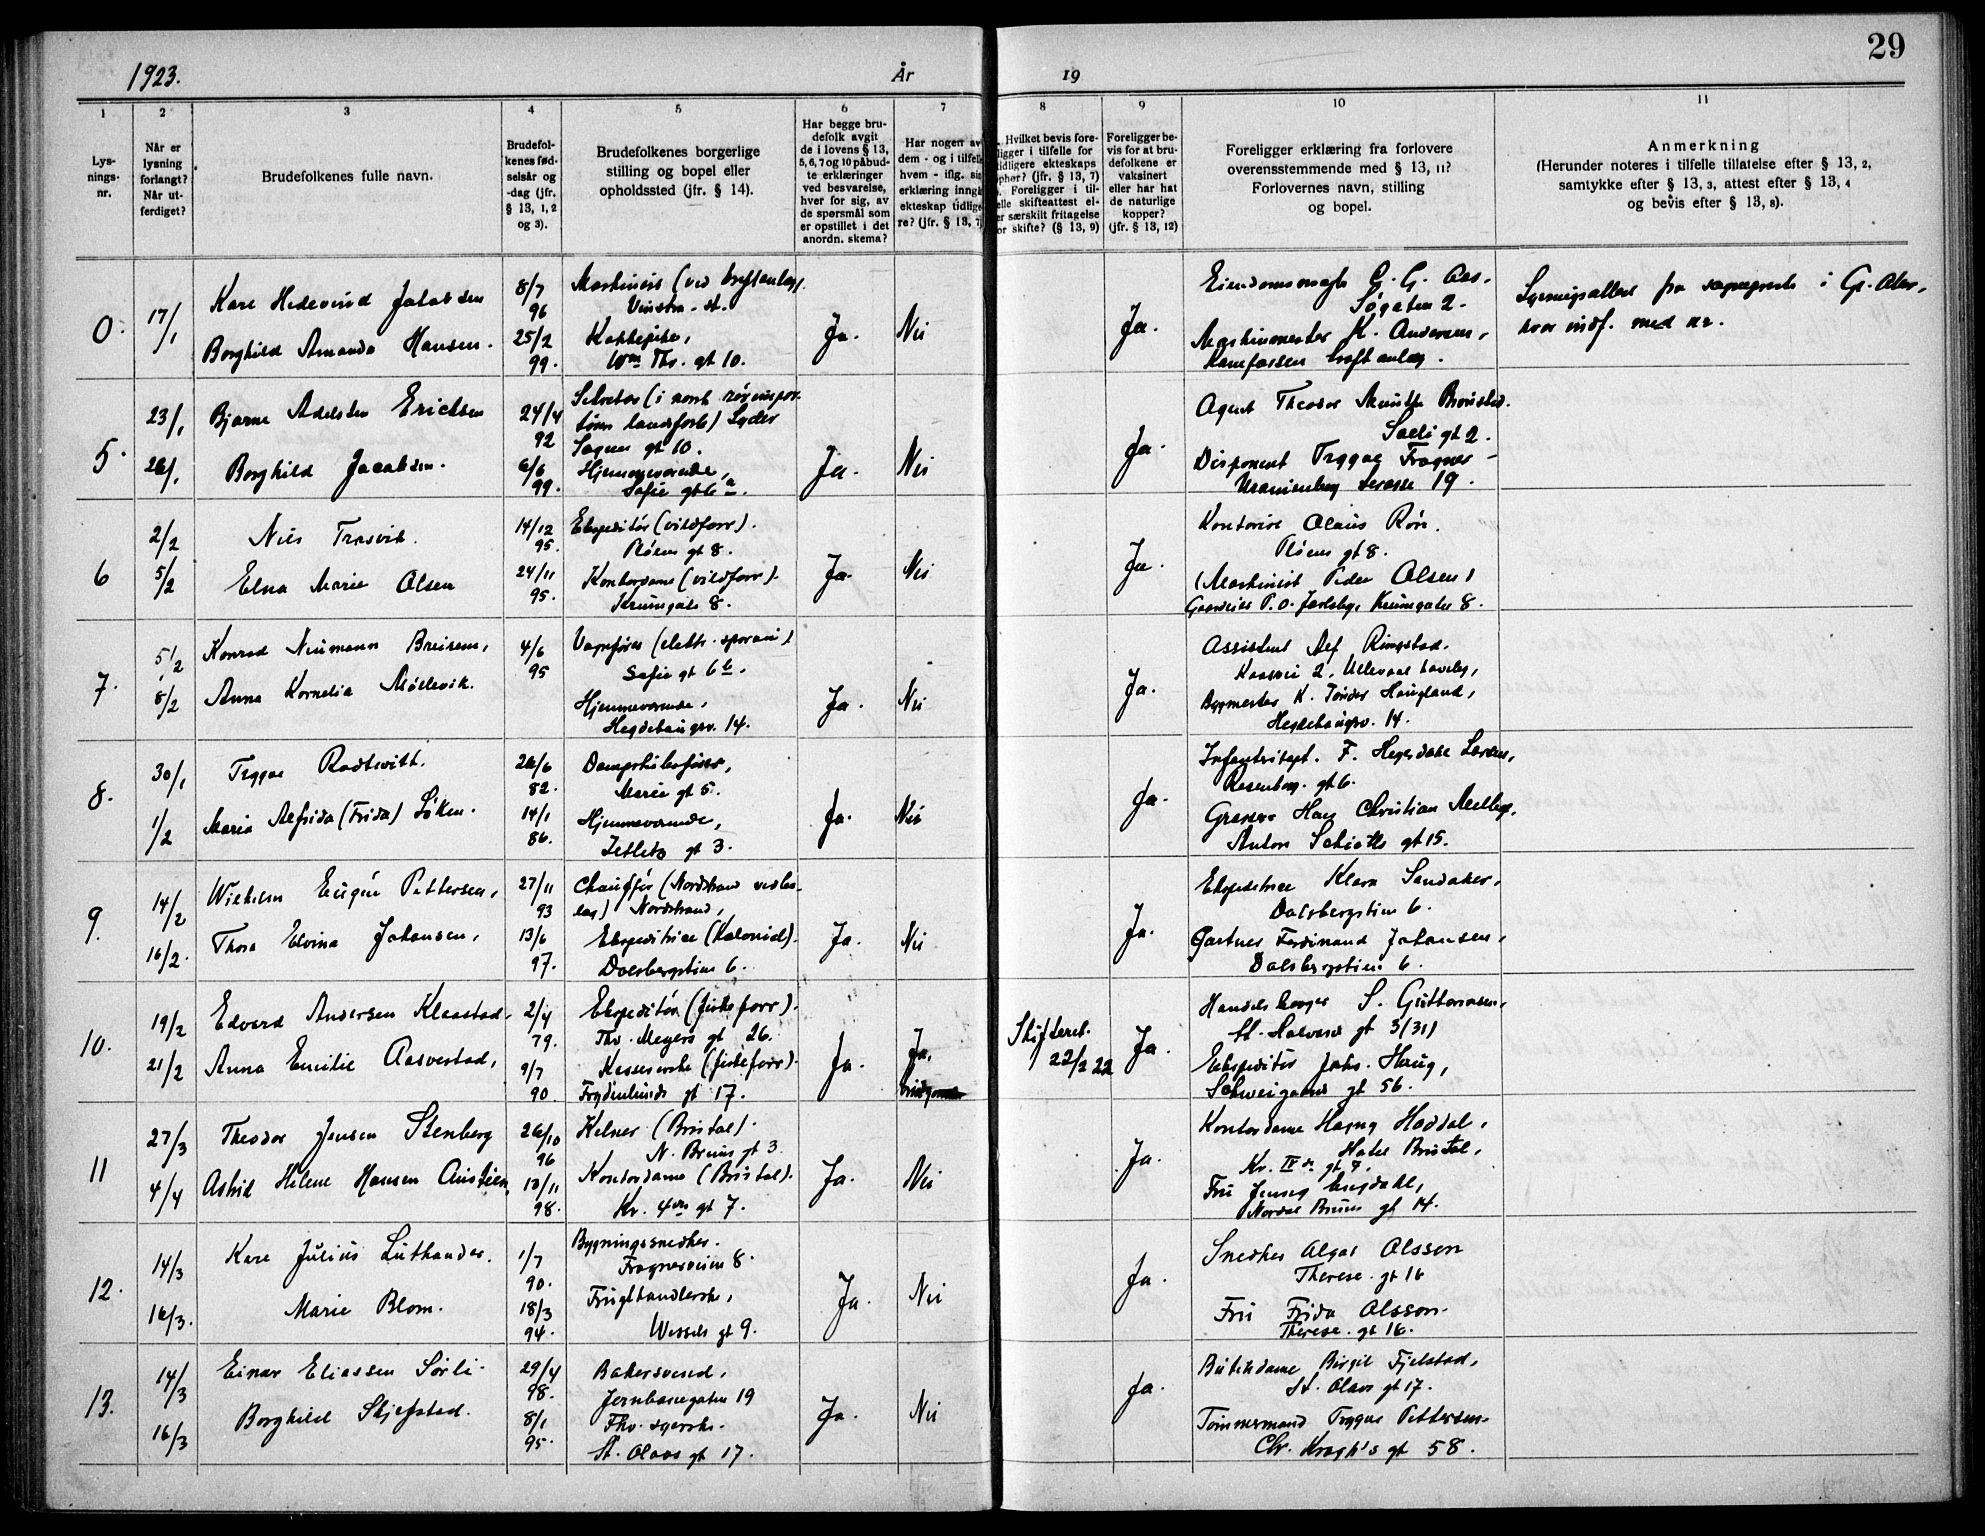 29
1923.
År
19
1
2
3
4
5
6
7
8
9
10
11
Lys-
nings-
nr.
Når er
lysning
forlangt?
Når ut-
ferdiget?
Brudefolkenes fulle navn.
Brudefol-
kenes fød-
selsår og
-dag (jfr.
§ 13, 1, 2
og 3).
Brudefolkenes borgerlige
stilling og bopel eller
opholdssted (jfr. § 14).
Har begge bru-
defolk avgit
de i lovens § 13,
5, 6, 7 og 10 påbud-
te erklæringer
ved besvarelse,
hver for sig, av
de spørsmål som
er opstillet i det
anordn. skema?
Har nogen av
dem - og i tilfelle
hvem - iflg. sin
erklæring inngå
ekteskap tidlige
re? (jfr. § 13, 7)
Hvilket bevis fore-
ligger i tilfelle for
tidligere ekteskaps
ophør? (jfr. § 13, 7)
Foreligger i til-
elle skifteattest el-
er særskilt fritagelse
or skifte? (§ 13, 9)
Foreligger be-
vis for at bru-
defolkene er
vaksinert
eller har hat
de naturlige
kopper?
(jfr. § 13, 12)
Foreligger erklæring fra forlovere
overensstemmende med § 13, 11?
Forlovernes navn, stilling
og bopel.
Anmerkning
(Herunder noteres i tilfelle tillatelse efter § 13, 2,
samtykke efter § 13, 3, attest efter § 13, 4
og bevis efter § 13, 8).
0.
17/1
Jakobsen
8/7
96
Maskinist (ved
Vinstra. st.
Borghild Amanda Hansen.
25/2
99.
Kokkepike,
Wm Ths. gt 10.
Ja.
Nei
Ja.
C. G. Aas.
Søgaten 2.
Maskinmester K. Andersen,
fra i
hvor indf. med nr.
5.
23/1
Bjarne Adelsten Ericksen
24/4
92
Sekretær (i norsk
Sagens gt 10.
26/1
Borghild Jacobsen.
6/6
99.
Hjemmeværende,
Sofie gt 6 a.
Ja.
Nei
Ja.
Agent Theodor Munthe
gt 2.
Disponent Trygve Frogner
Uranienborg terasse 19.
6
2/2
Nils
14/12
95.
Ekspeditør (vildforr).
Pløens gt 8.
5/2
Elna Marie Olsen
24/11
95.
Kontordame (vildforr).
Krumgate 8.
Ja.
Nei
Ja.
Kontorist Olaus
Pløens gt 8.
(Maskinist Peder Olsen)
P. O. Krumgate 8.
7.
5/2
Konrad Neumann
4/6
95
Vognfører (elektr. sporvei)
Sofie gt 6 b.
8/2
Anna Kornelia Møllevik.
Hjemmeværende,
Hegdehaugsv. 14.
Ja.
Nei
Ja.
Assistent Alf Ringstad.
2, Ullevaal haveby,
Bygmester K. Tønder Haugland,
Hegdehaugsv. 14.
8.
30/1
Trygve Rodtwitt.
26/6
82.
Dampskibsfører,
Marie gt 5.
1/2
Maria Alfrida (Frida) Løken.
14/1
86.
Hjemmeværende,
Zetlitz gt 3.
Ja.
Nei
Ja.
F. Larsen,
Rosenborg. gt 6.
Hans Christian
Anton Schiøtts gt 15.
9.
14/2
Wilhelm Eugén Pettersen,
27/11
93
Chauffør (Nordstrand
Nordstrand,
16/2.
Thora Elvina Johansen,
13/6
97.
Ekspeditrice (Kolonial).
Dalsbergstien 6.
Ja.
Nei
Ja.
Ekspeditrice Klara Sandaker,
Dalsbergstien 6.
Gartner Ferdinand Johansen,
Dalsbergstien 6.
10.
19/2
Edvard Andersen Klaastad
2/4
79.
Ekspeditør (fiskeforr).
Thv. Meyers gt 26.
21/2
Anna Emilie Aasvestad,
9/7
90
Kassererske (fiskeforr).
Frydenlunds gt 17.
Ja.
Ja,
brudgommen
Skifteret.
22/2 22
Ja.
S. Guttormsen,
St. Halvards gt 3 (31)
Ekspeditør Johs. Haug,
Schweigaards gt 56.
11
27/3
Theodor Jensen Stenberg
26/10
96
Kelner (Bristol).
N. Bruns gt 3
4/4
Astrid Helene Hansen
10/11
98.
Kontordame (Bristol).
Kr. 4des gt 7.
Ja.
Nei
Ja.
Kontordame Hoddal,
Hotel Bristol,
Kr. IV des gt 7.
Fru Jenny Engdahl,
Nordal Bruns gt 14.
12.
14/3
Kare Julius Luthander.
1/7
90.
Bygningssnedker.
Frognerveien 8.
16/3.
Marie Blom.
18/3
94.
Frugthandlerske,
Wessels gt 9.
Ja.
Nei
Ja.
Snedker Algot Olsson
Therese. gt 16
Fru Frida Olsson.
Therese. gt 16.
13.
14/3
Einar Eliassen Sørli.
29/4
98.
Bakersvend,
Jernbanegaten 19
16/3
Borghild Skjefstad.
8/1
95.
Fhv. syerske.
St. Olavs gt 17.
Ja.
Nei
Ja.
Butikdame Birgit Fjelstad,
St. Olavs gt 17.
Tømmermand Trygve Pettersen.
Chr. Krogh's gt 58.